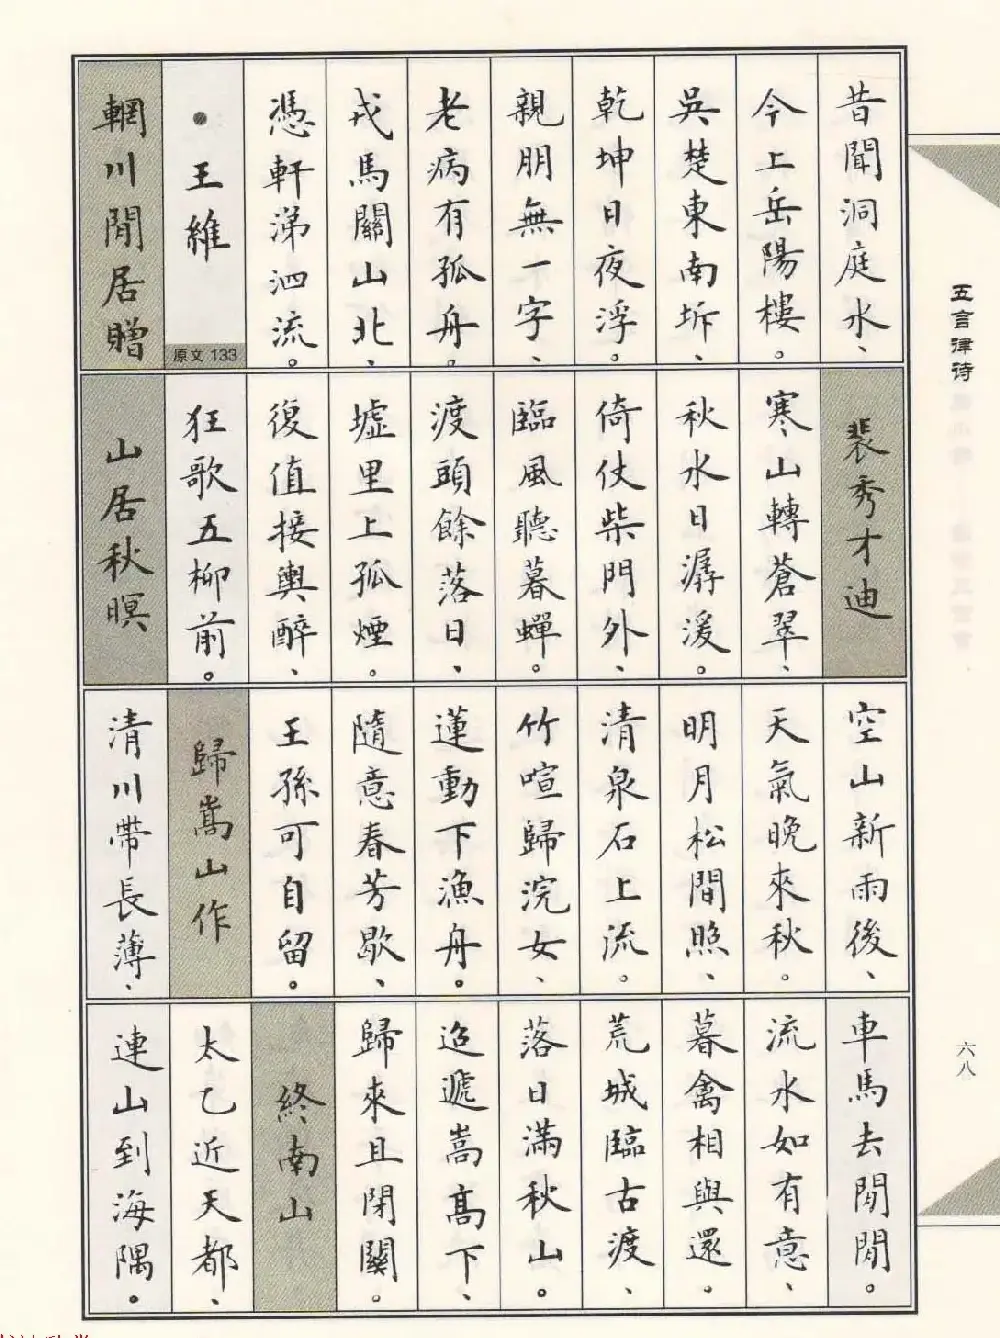 昔聞洞庭水、
今上岳陽樓。
吳楚東南坼、
乾坤日夜浮。
親朋無一字、
老病有孤舟。
戎馬關山北、
憑軒涕泗流。
●王維
原文 133
輞川閒居贈
裴秀才迪
寒山轉蒼翠、
秋水日潺湲。
倚仗柴門外、
臨風聽暮蟬。
渡頭餘落日、
墟里上孤煙。
復值接輿醉、
狂歌五柳前。
山居秋暝
空山新雨後、
天氣晚來秋。
明月松間照、
清泉石上流。
竹喧歸浣女、
蓮動下漁舟。
隨意春芳歇、
王孫可自留。
歸嵩山作
清川帶長薄、
車馬去閒閒。
流水如有意、
暮禽相與還。
荒城臨古渡、
落日滿秋山。
迢遞嵩高下、
歸來且閉關。
終南山
太乙近天都、
連山到海隅。
五言律诗
六八